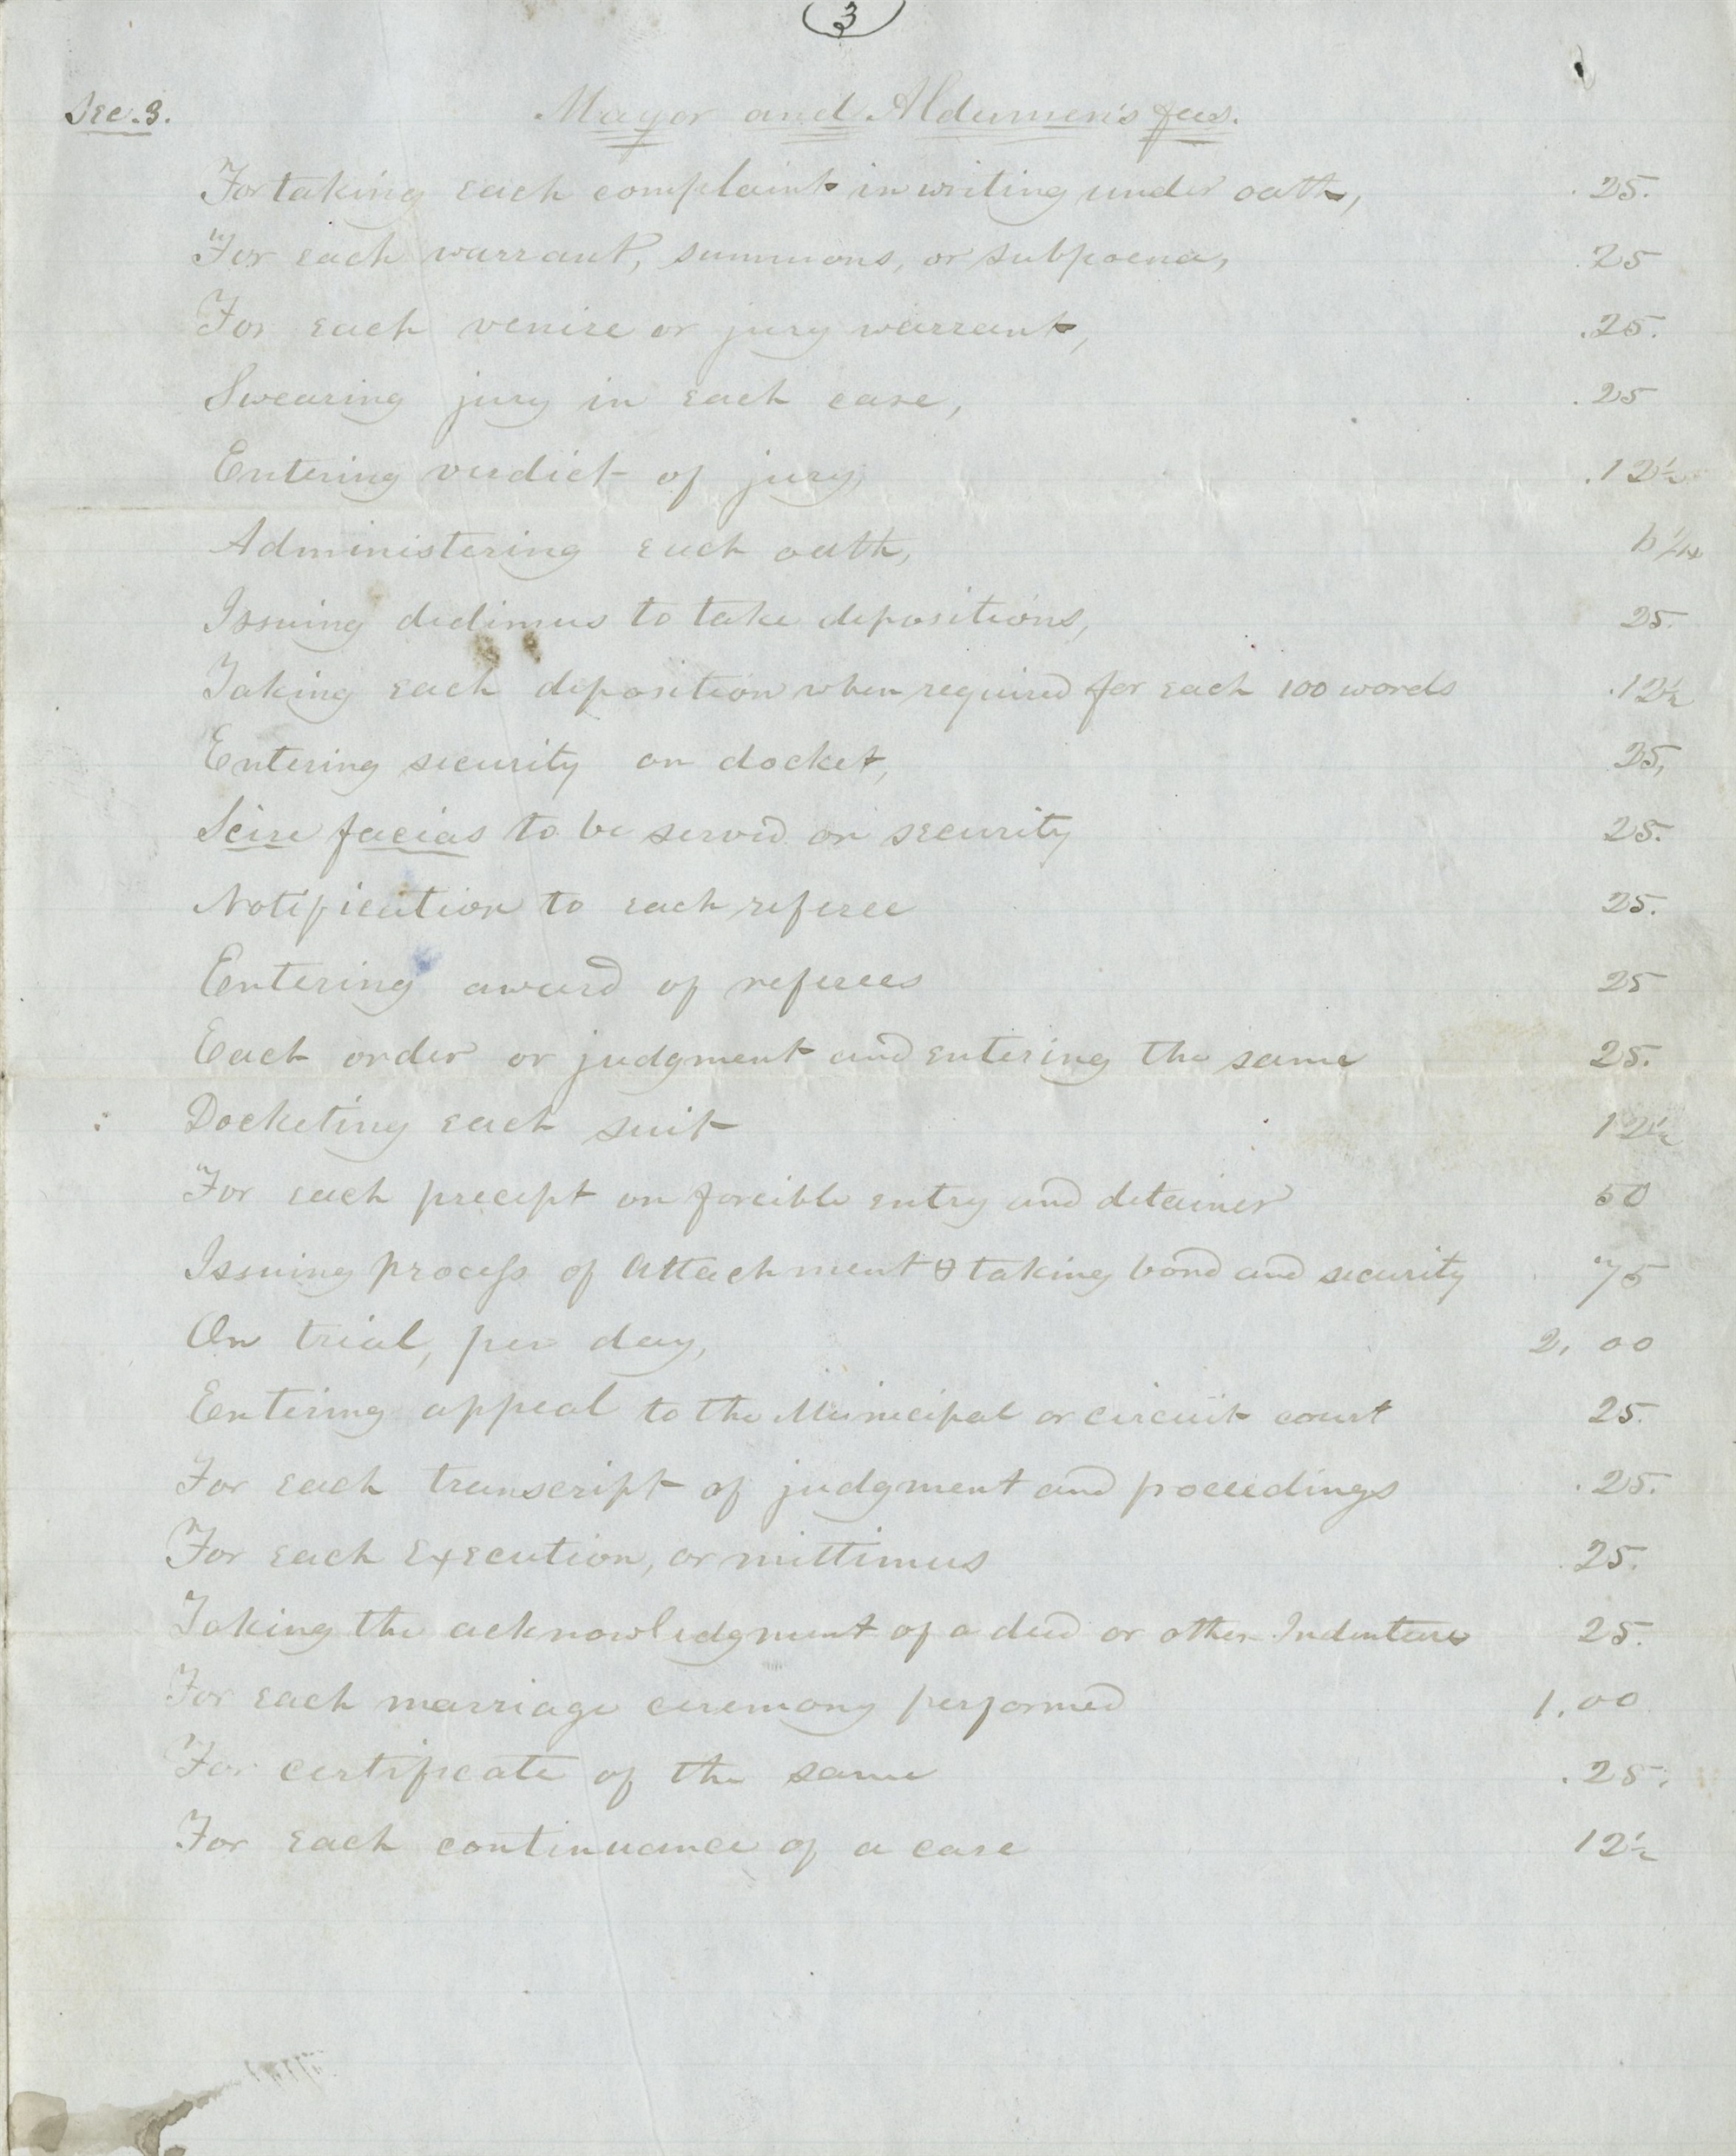 3
Sec. 3. Mayor and Aldermen's fees.
For taking each complaint in writing under oath, .25.
For each warrant, summons, or subpoena, .25
For each venire or jury warrant, .25.
Swearing jury in each case, .25
Entering verdict of jury, .12½
Administering each oath, 6¼
Issuing dedimus to take depositions, 25.
Taking each deposition when required for each 100 words .12½
Entering security on docket, 25,
Scire facias to be served on security 25.
Notification to each referee 25.
Entering award of referees 25
Each order or judgment and entering the same 25.
Docketing each suit 12½
For each precept on forcible entry and detainer 50
Issuing process of Attachment & taking bond and security 75
On trial, per day, 2.00
Entering appeal to the Municipal or circuit court 25.
For each transcript of judgment and proceedings .25.
For each Execution, or mittimus .25.
Taking the acknowledgment of a deed or other Indenture 25.
For each marriage ceremony performed 1.00
For certificate of the same .25.
For each continuance of a case 12½